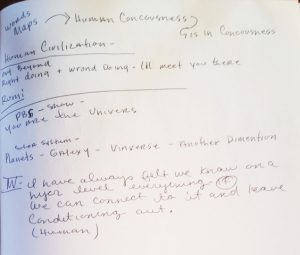 words
Maps → Human Concousness
is in Concousness
Human Civilization -
out beyond
Right doing + wrong Doing - I'll meet you there
Rumi
PBS - show -
you are the Univers
system -
Planets - Galaxy - Vinverse - Another Dimention
IN - I have always felt we know on a
hyer level everything
we can connect to it and leave
conditioning out.
(Human)